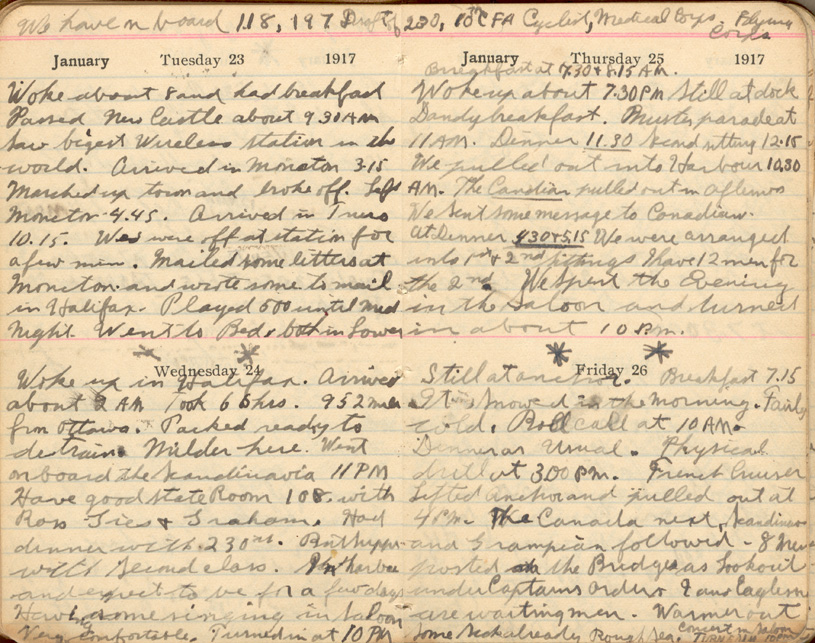 We have on board 118, 197 Draft of 230, 10th CFA Cyclist, Medical Corps. Flying Corps
January Tuesday 23 1917
Woke about 8 and had breakfast
Passed New Castle about 9 30 AM
Saw bigest Wireless station in the
world. Arrived in Moncton 3-15
Marched up town and broke off. Left
Moncton 4.45. Arrived in Truro
10.15. Wes were off at station for
a few min. Mailed some letters at
Moncton and wrote some to mail
in Halifax. Played 500 until Mid
Night. Went to Bed, both in Lower
Wednesday 24
Woke up in Halifax. Arrived
about 2 AM took 65 hrs. 952 miles
from Ottawa. Packed ready to
detrain. Milder here. Went
on board the Scandinavia 11 PM
Have good State Room 108. with
Ross Gies & Graham. Had
dinner with 230th. But supper
with Second class. In harbor
and expect to be for a few days
Have some singing in Saloon
Very comfortable. Turned in at 10 PM
January Thursday 25 1917
Breakfast at 7.30 & 8.15 AM.
Woke up about 7.30 PM Still at dock
Dandy breakfast. Muster parade at
11 AM. Dinner 11.30 Second sitting 12.15
We pulled out into Harbour 10.30
AM. The Canadian pulled out in afternoo
We sent some message to Canadian.
at Dinner 4.30 & 5.15 We were arranged
into 1st & 2nd sittings I have 12 men for
the 2nd. We spent the Evening
in the saloon and turned
in about 10 P.M.
Friday 26
Still at anchor. Breakfast 7.15
It snowed in the morning. Fairly
cold. Roll call at 10 AM.
Dinner as Usual. Physical
drill at 3.00 PM. French Cruiser
Lifted anchor and pulled out at
4 PM. The Canada next, Scandinav
and Grampian followed - 8 Men
posted on the Bridge as Lookout
under Captains Orders I and Eagleson
are waiting men. Warmer out
Some Seck already Rough Sea. Concert in Saloon